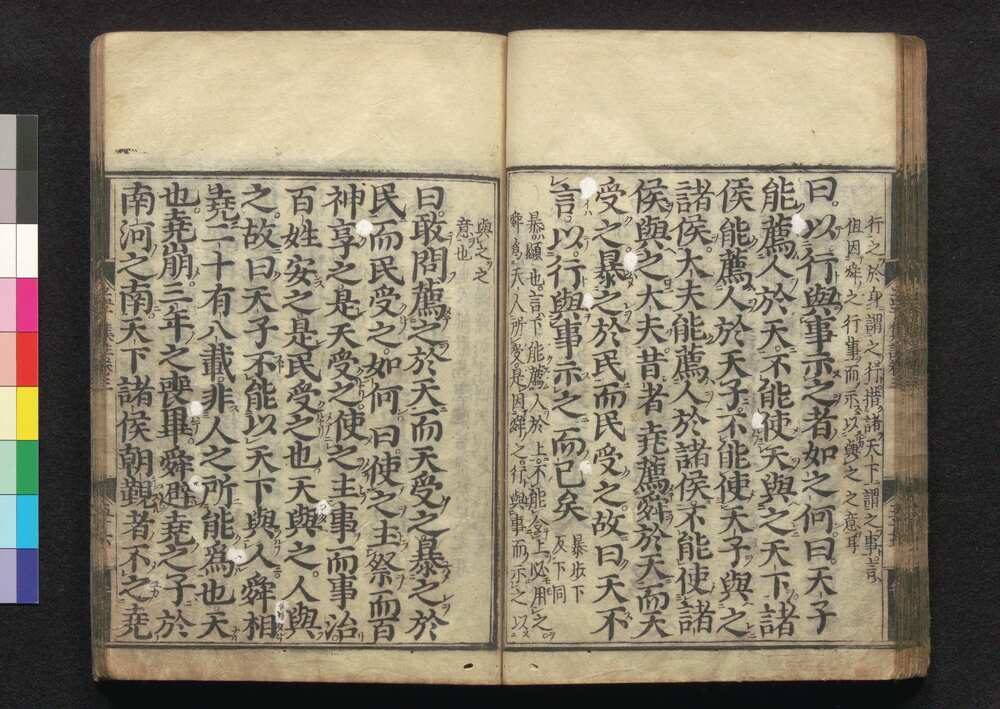 行之於身謂之行措諸天下謂之事言
但因舜之行事而示以與之之意耳
曰以行與事示之者如之何曰天子
能薦人於天不能使天與之天下諸
侯能薦人於天子不能使天子與之
諸侯大夫能薦人於諸侯不能使諸
侯與之大夫昔者堯薦舜於天而天
受之暴之於民而民受之故曰天不
言以行與事示之而已矣
暴步卜
反下同
暴顯也言下能薦人於上不能令上必用之
舜爲天人所受是因舜之行與事而示之以
與之之
意也
曰敢問薦之於天而天受之暴之於
民而民受之如何曰使之主祭而百
神享之是天受之使之主事而事治
百姓安之是民受之也天與之人與
之故曰天子不能以天下與人舜相
堯二十有八載非人之所能爲也天
也堯崩三年之喪畢舜避堯之子於
南河之南天下諸侯朝覲者不之堯